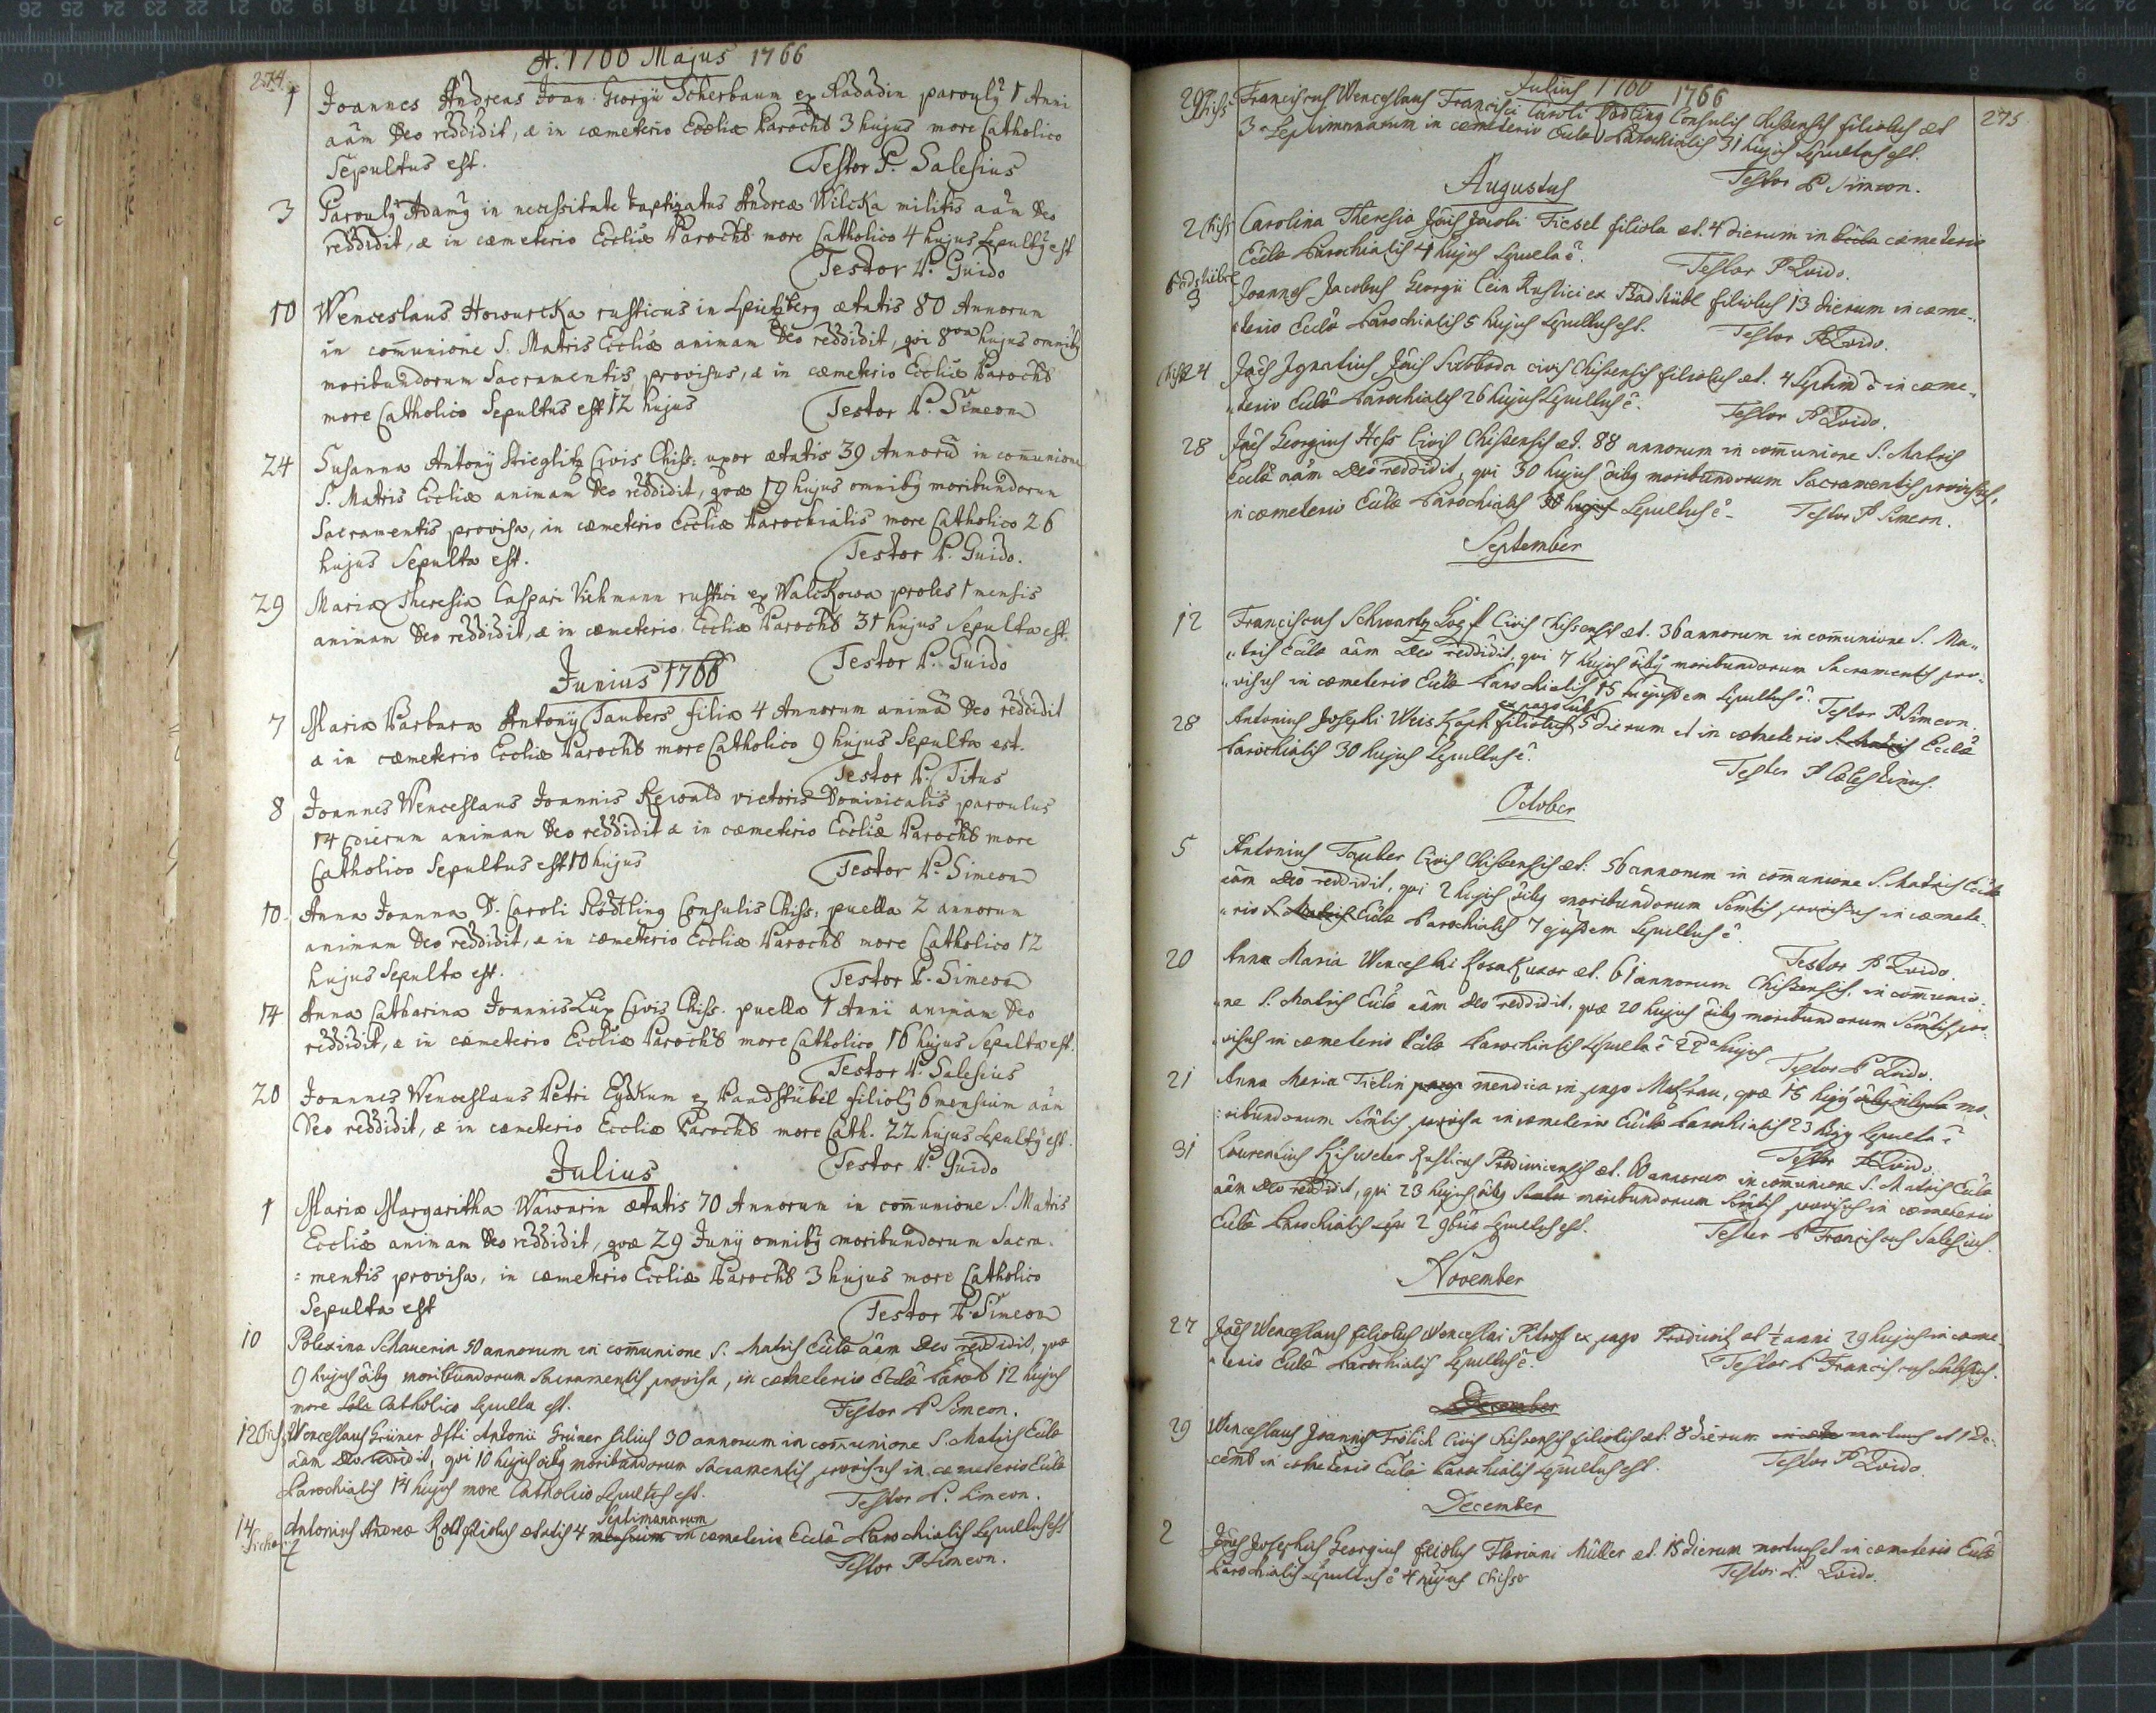 274.
A. 1766 Majus 1766
1 Joannes Andreas Joan. Georgii Scherbaum ex Radadin parvulq 1 Anni
aãm Deo reddidit, & in cæmeterio Eccliæ Parochs 3 hujus more Catholico
Sepultus est. Testor P. Salesius
3 Parvulq Adamq in necessitate baptizatus Andreæ Wilcka militis aãm Deo
reddidit, & in cæmeterio Eccliæ Parochs more Catholico 4 hujus Sepultq est
Testor P. Guido
10 Wenceslaus Howurcka rusticus in Spitzberg ætatis 80 Annorum
in com̃unione S. Matris Eccliæ animam Deo reddidit, qui 8va hujus omnibq
moribundorum Sacramentis provisus, & in cæmeterio Eccliæ Parochs
more Catholico Sepultus est 12 hujus Testor P. Simeon
24 Susanna Antonÿ Stieglitz Civis Chiss: uxor ætatis 39 Annorũ in com̃unione
S. Matris Eccliæ animam Deo reddidit, quæ 19 hujus omnibq moribundorum
Sacramentis provisa, in cæmeterio Eccliæ Parochialis more Catholico 26
hujus Sepulta est. Testor P. Guido.
29 Maria Theresia Caspari Viehmann rustici ex Walckowa proles 1 mensis
animam Deo reddidit, & in cæmeterio Eccliæ Parochs 31 hujus Sepulta est.
Testor P. Guido
Junius 1766
7 Maria Barbara Antonÿ Taubers filia 4 Annorum animã Deo reddidit
& in cæmeterio Eccliæ Parochs more Catholico 9 hujus Sepulta est.
Testor P. Titus
8 Joannes Wenceslaus Joannis Rewald victoris Dominicalis parvulus
14 dierum animam Deo reddidit & in cæmeterio Eccliæ Parochs more
Catholico Sepultus est 10 hujus Testor P. Simeon
10. Anna Joanna D. Caroli Rödtling Consulis Chiss: puella 2 annorum
animam Deo reddidit, & in cæmeterio Eccliæ Parochs more Catholico 12
hujus Sepulta est. Testor P. Simeon
14 Anna Catharina Joannis Lux Civis Chiss. puella 1 Anni animam Deo
reddidit, & in cæmeterio Eccliæ Parochs more Catholico 16 hujus Sepulta est.
Testor P. Salesius
20 Joannes Wenceslaus Petri Eydkum ex Bandstübel filiolq 6 mensium aãm
Deo reddidit, & in cæmeterio Eccliæ Parochs more Cath. 22 hujus Sepultq est.
Testor P. Guido
Julius
1 Maria Margaritha Wawarin ætatis 70 Annorum in com̃unione S. Matris
Eccliæ animam Deo reddidit, quæ 29 Junÿ omnibq moribundorum Sacra-
=mentis provisa, in cæmeterio Eccliæ Parochs 3 hujus more Catholico
Sepulta est Testor P. Simeon
10 Polexina Schauerin 50 annorum in com̃unione S. Matris Ecclæ aãm Deo reddidit, quæ
9 hujus õibq moribundorum Sacramentis provisa, in cæmeterio Ecclæ Paroch 12 hujus
more Catholico Sepulta est. Testor P Simeon.
12 Wenceslaus Grüner dfti Antonii Grüner filius 30 annorum in com̃unione S. Matris Ecclæ
aãm Deo reddidit, qui 10 hujus õibq moribundorum Sacramentis provisus in cæmeterio Ecclæ
Parochialis 14 hujus more Catholico Sepultus est. Testor P. Simeon.
Septimanarum
14 Antonius Andreæ filiolus ætatis 4 mensium in cæmeterio Ecclæ Parochialis Sepultus est
Testor P Simeon.
275.
Julius 1766 1766
29 Chiss Franciscus Wenceslaus Francisci Caroli Rödling Consulis Chissensis filiolus æt
3 Septimanarum in cæmeterio Ecclæ Parochialis 31 hujus Sepultus est.
Testor P Simeon.
Augustus
2 Chiss Carolina Theresia Jois Jacobi Fiesel filiola æt. 4 dierum in cæmeterio
Ecclæ Parochialis 4 hujus Sepulta ẽ. Testor P Quido.
3 Joannes Jacobus Georgii Rustici ex Badstübl filiolus 13 dierum in cæme-
terio Ecclæ Parochialis 5 hujus Sepultus est. Testor P Quido.
Chiss 4 Jões Ignatius Jõis Swoboda civis Chissensis filiolus æt. 4 Septim̃ ẽ in cæme-
terio Ecclæ Parochialis 26 hujus Sepultus ẽ. Testor P Quido.
28 Jões Georgius Hess Civis Chissensis æt. 88 annorum in com̃unione S. Matris
Ecclæ aãm Deo reddidit, qui 30 hujus õibq moribundorum Sacramentis provisus,
in cæmeterio Ecclæ Parochialis 30 hujus Sepultus ẽ. Testor P Simeon.
September
12 Franciscus Schwartz Civis Chissensis æt. 36 annorum in com̃unione S. Ma-
tris Ecclæ aãm Deo reddidit, qui 7 hujus õibq moribundorum Sacramentis pro-
visus in cæmeterio Ecclæ Parochialis 15 ejusdem Sepultus ẽ. Testor P Simeon.
28 Antonius Josephi Weiskopf filiolus 5 dierum et in cæmeterio S. Matris Ecclæ
Parochialis 30 hujus Sepultus ẽ. Testor P Cælestinus.
October
5 Antonius Tauber Civis Chissensis æt. 56 annorum in com̃unione S. Matris Ecclæ
aãm Deo reddidit, qui 2 hujus õibq moribundorum Sãmtis provisus in cæmete-
rio S. Matris Ecclæ Parochialis 7 ejusdem Sepultus ẽ.
Testor P Quido.
20 Anna Maria Wenceslai Kosak uxor æt. 61 annorum Chissensis, in com̃unio-
ne S. Matris Ecclæ aãm Deo reddidit, quæ 20 hujus õibq moribundorum Sãmtis pro-
visus in cæmeterio Ecclæ Parochialis Sepulta ẽ 22a hujus
Testor P Quido.
21 Anna Maria Tielin mendica in pago, quæ 15 hujq mo-
ribundorum Sãmtis provisa in cæmeterio Ecclæ Parochialis 23 hujq Sepulta ẽ
Testor P Quido.
31 Laurentius Rusticus æt. 60 annorum in com̃unione S. Matris Ecclæ
aãm Deo reddidit, qui 23 hujus õibq moribundorum Sãmtis provisus in cæmeterio
Ecclæ Parochialis 2 9bris Sepultus est. Testor P Franciscus Salesius.
November
27 Jões Wenceslaus filiolus Wenceslai ex pago æt ½ anni 29 hujus in cæme-
terio Ecclæ Parochialis Sepultus ẽ. Testor P Franciscus Salesius.
December
29 Wenceslaus Joannis Frölich Civis Chissensis filiolus æt. 8 dierum mortuus et 1 De-
cemb in cæmeterio Ecclæ Parochialis Sepultus est. Testor P Quido.
December
2 Jões Josephus Georgius filiolus Floriani Müller æt. 15 dierum mortuus et in cæmeterio Ecclæ
Parochialis Sepultus ẽ 4 hujus Chissæ Testor P. Quido.